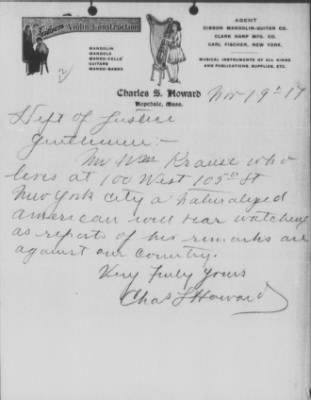 Gibson Violin Construction
MANDOLIN
MANDOLA
MANDO-CELLO
GUITARS
MANDO-BASSO
AGENT
GIBSON MANDOLIN-GUITAR CO.
CLARK HARP MFG. CO.
CARL FISCHER, NEW YORK.
MUSICAL INSTRUMENTS OF ALL KINDS
AND PUBLICATIONS, SUPPLIES, ETC.
Charles S. Howard
Hopedale, Mass.
Nov 19th 17
Dept of Justice
Gentlemen:-
Mr Wm Krause who
lives at 100 West 105th St
New York City a naturalized
american will bear watching
as reports of his remarks are
against our country.
Very Truly Yours
Chas S Howard